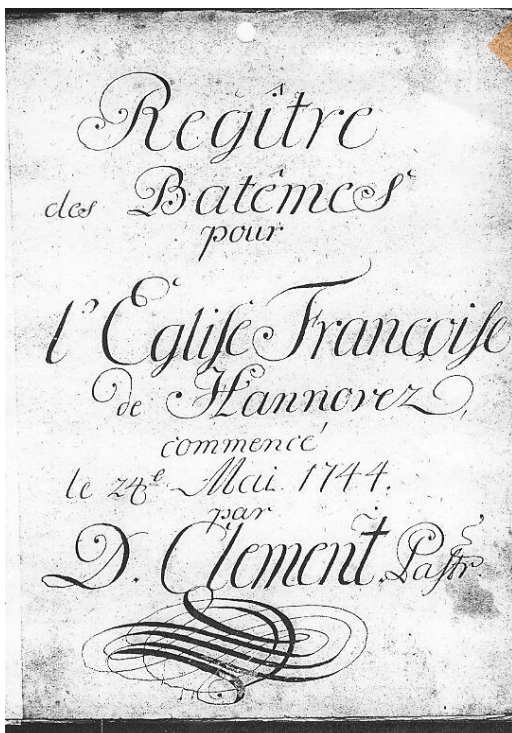 Regître
des Batêmes
pour
l'Egliſe Françoiſe
de Hannover,
commencé
le 24e Mai 1744.
par
D. Clement. Paſtr.